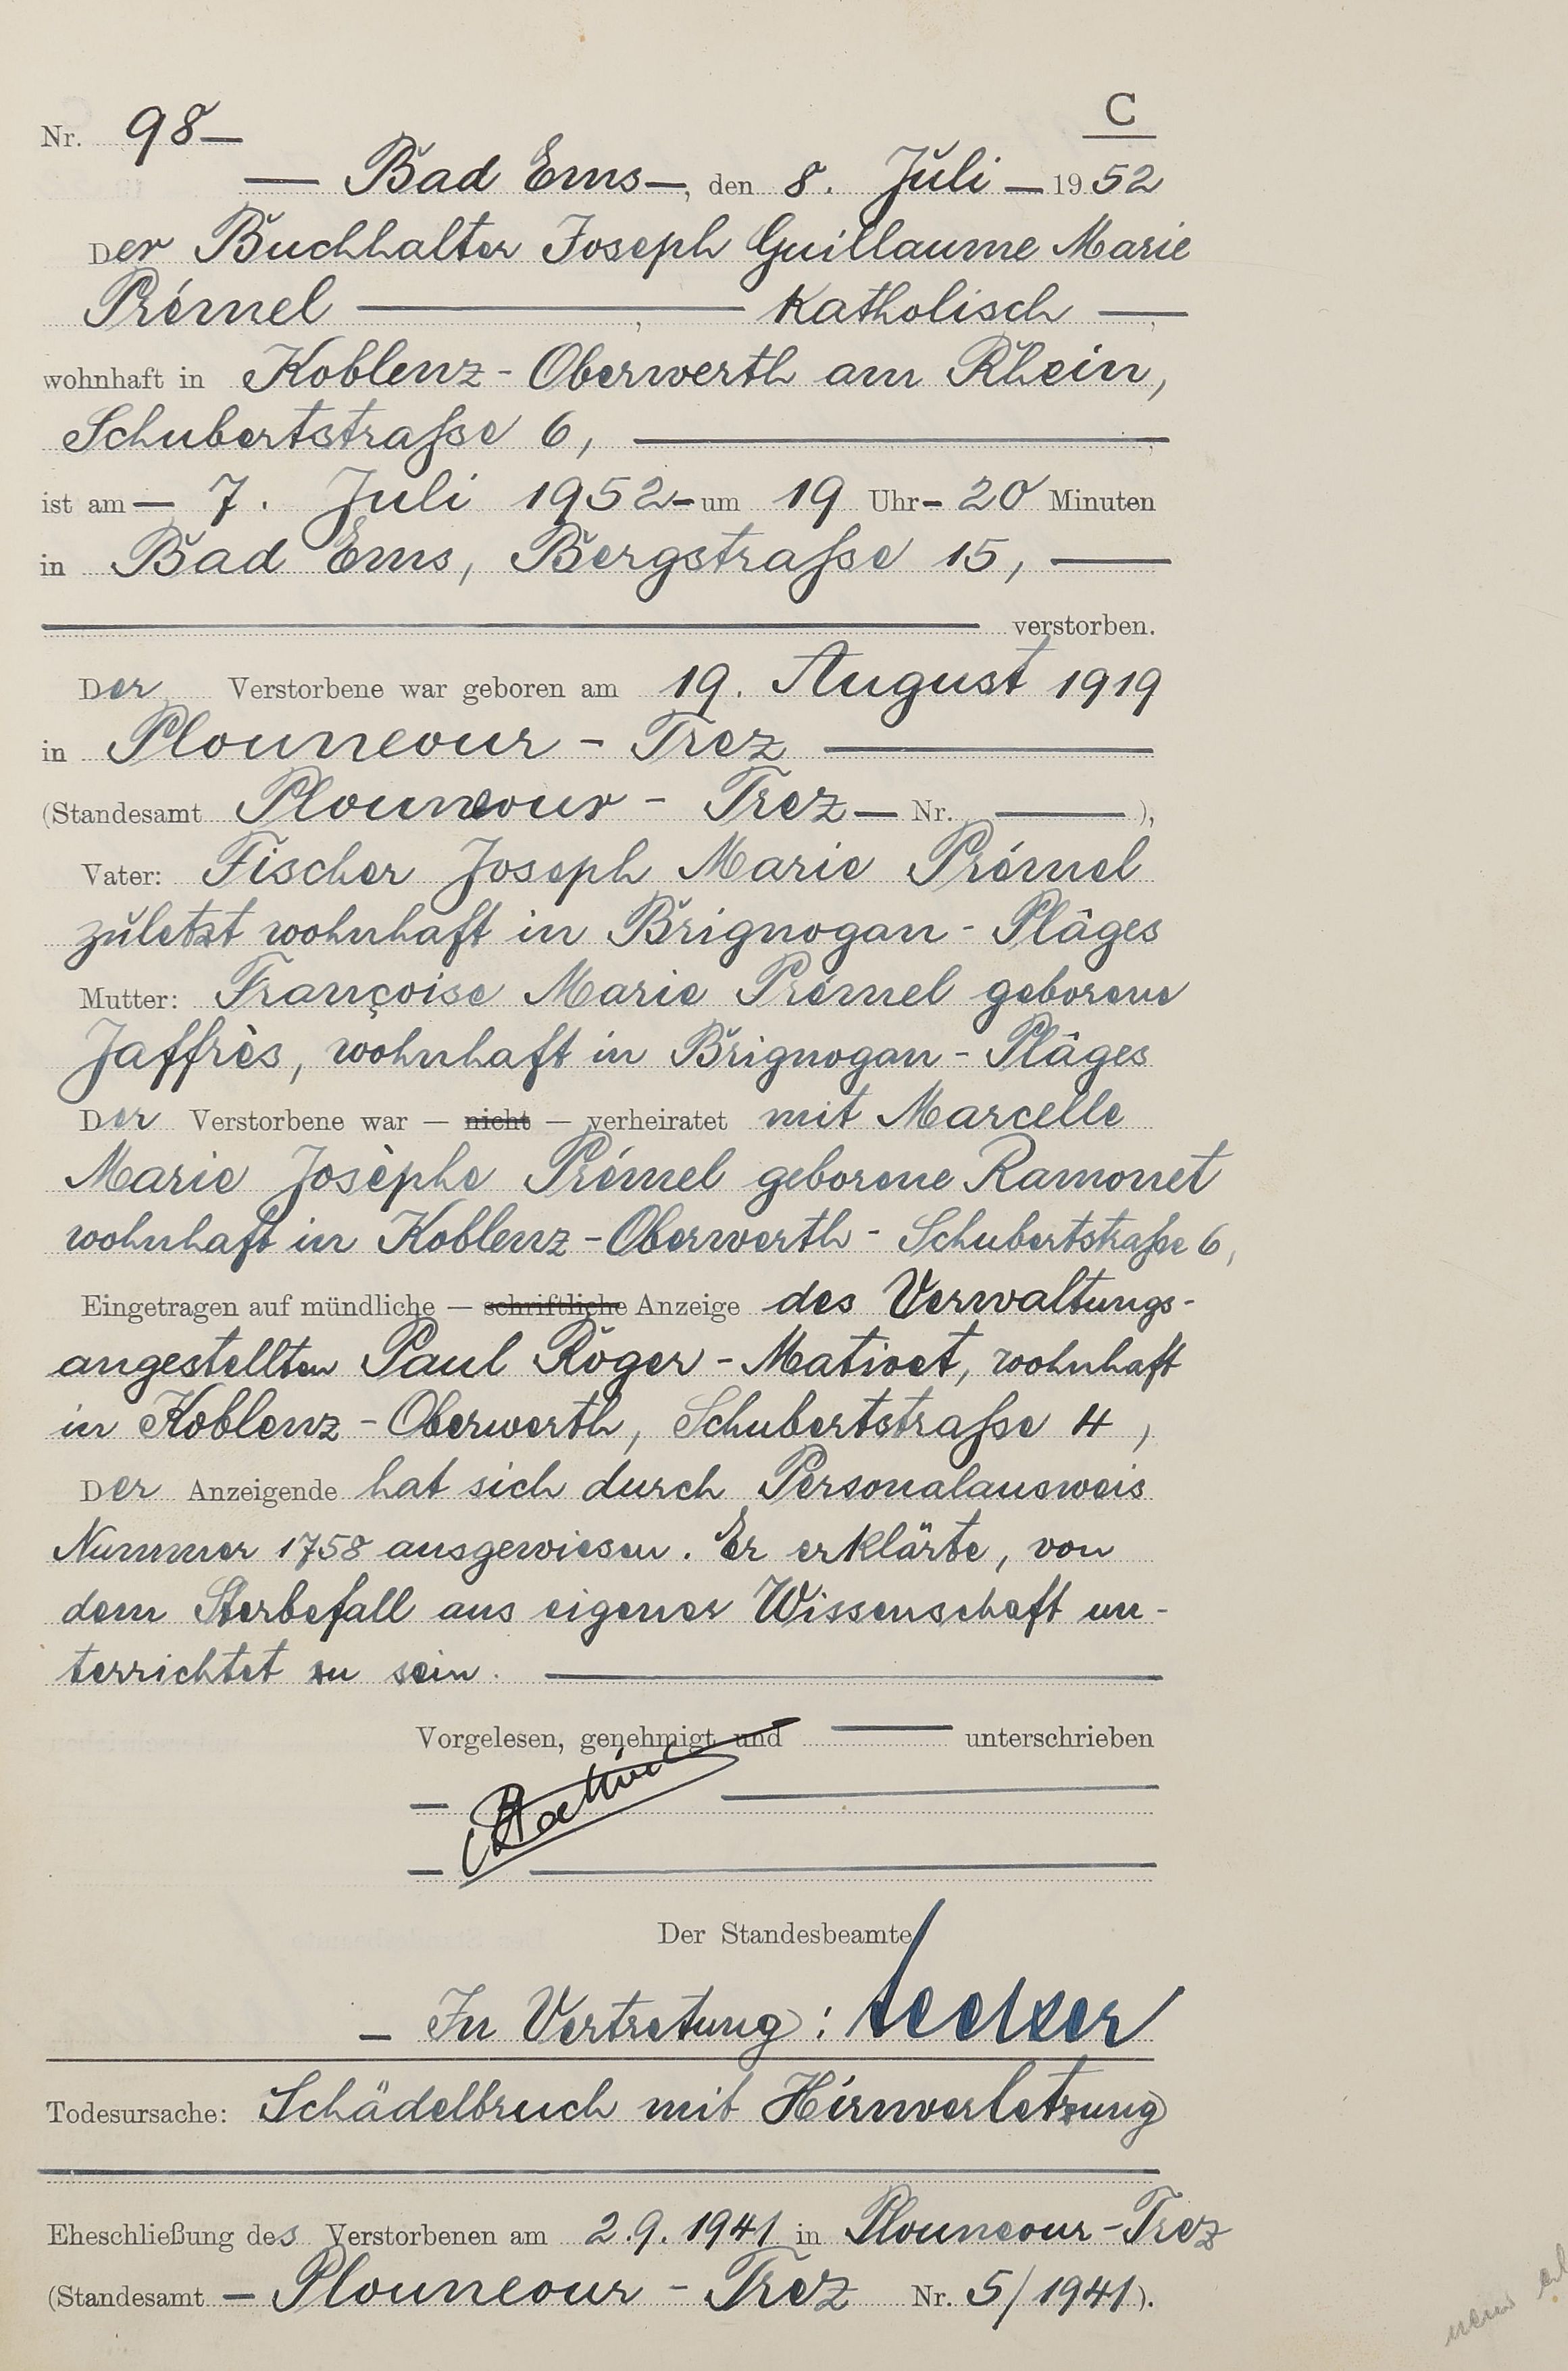 C
Nr. 98 —
— Bad Ems —, den 8. Juli — 1952
Der Buchhalter Joseph Guillaume Marie
Prémel ——, —— katholisch ——,
wohnhaft in Koblenz - Oberwerth am Rhein,
Schubertstrasse 6, ——
ist am — 7. Juli 1952 - um 19 Uhr - 20 Minuten
in Bad Ems, Bergstrasse 15, ——
—— verstorben.
Der Verstorbene war geboren am 19. August 1919
in Plouneour - Trez ——
(Standesamt Plouneour - Trez — Nr. ——),
Vater: Fischer Joseph Marie Prémel
zuletzt wohnhaft in Brignogan - Plâges
Mutter: Françoise Marie Prémel geborene
Jaffrès, wohnhaft in Brignogan - Plâges
Der Verstorbene war — nicht — verheiratet mit Marcelle
Marie Josèphe Prémel geborene Ramonet
wohnhaft in Koblenz - Oberwerth - Schubertstrasse 6,
Eingetragen auf mündliche — schriftliche Anzeige des Verwaltungs-
angestellten Paul Roger - Mativet, wohnhaft
in Koblenz - Oberwerth, Schubertstrasse 4,
Der Anzeigende hat sich durch Personalausweis
Nummer 1758 ausgewiesen. Er erklärte, von
dem Sterbefall aus eigener Wissenschaft un-
terrichtet zu sein. ——
Vorgelesen, genehmigt und —— unterschrieben
Der Standesbeamte
— In Vertretung:
Todesursache: Schädelbruch mit Hirnverletzung
Eheschließung des Verstorbenen am 2.9.1941 in Plouneour - Trez
(Standesamt — Plouneour - Trez Nr. 5/1941).